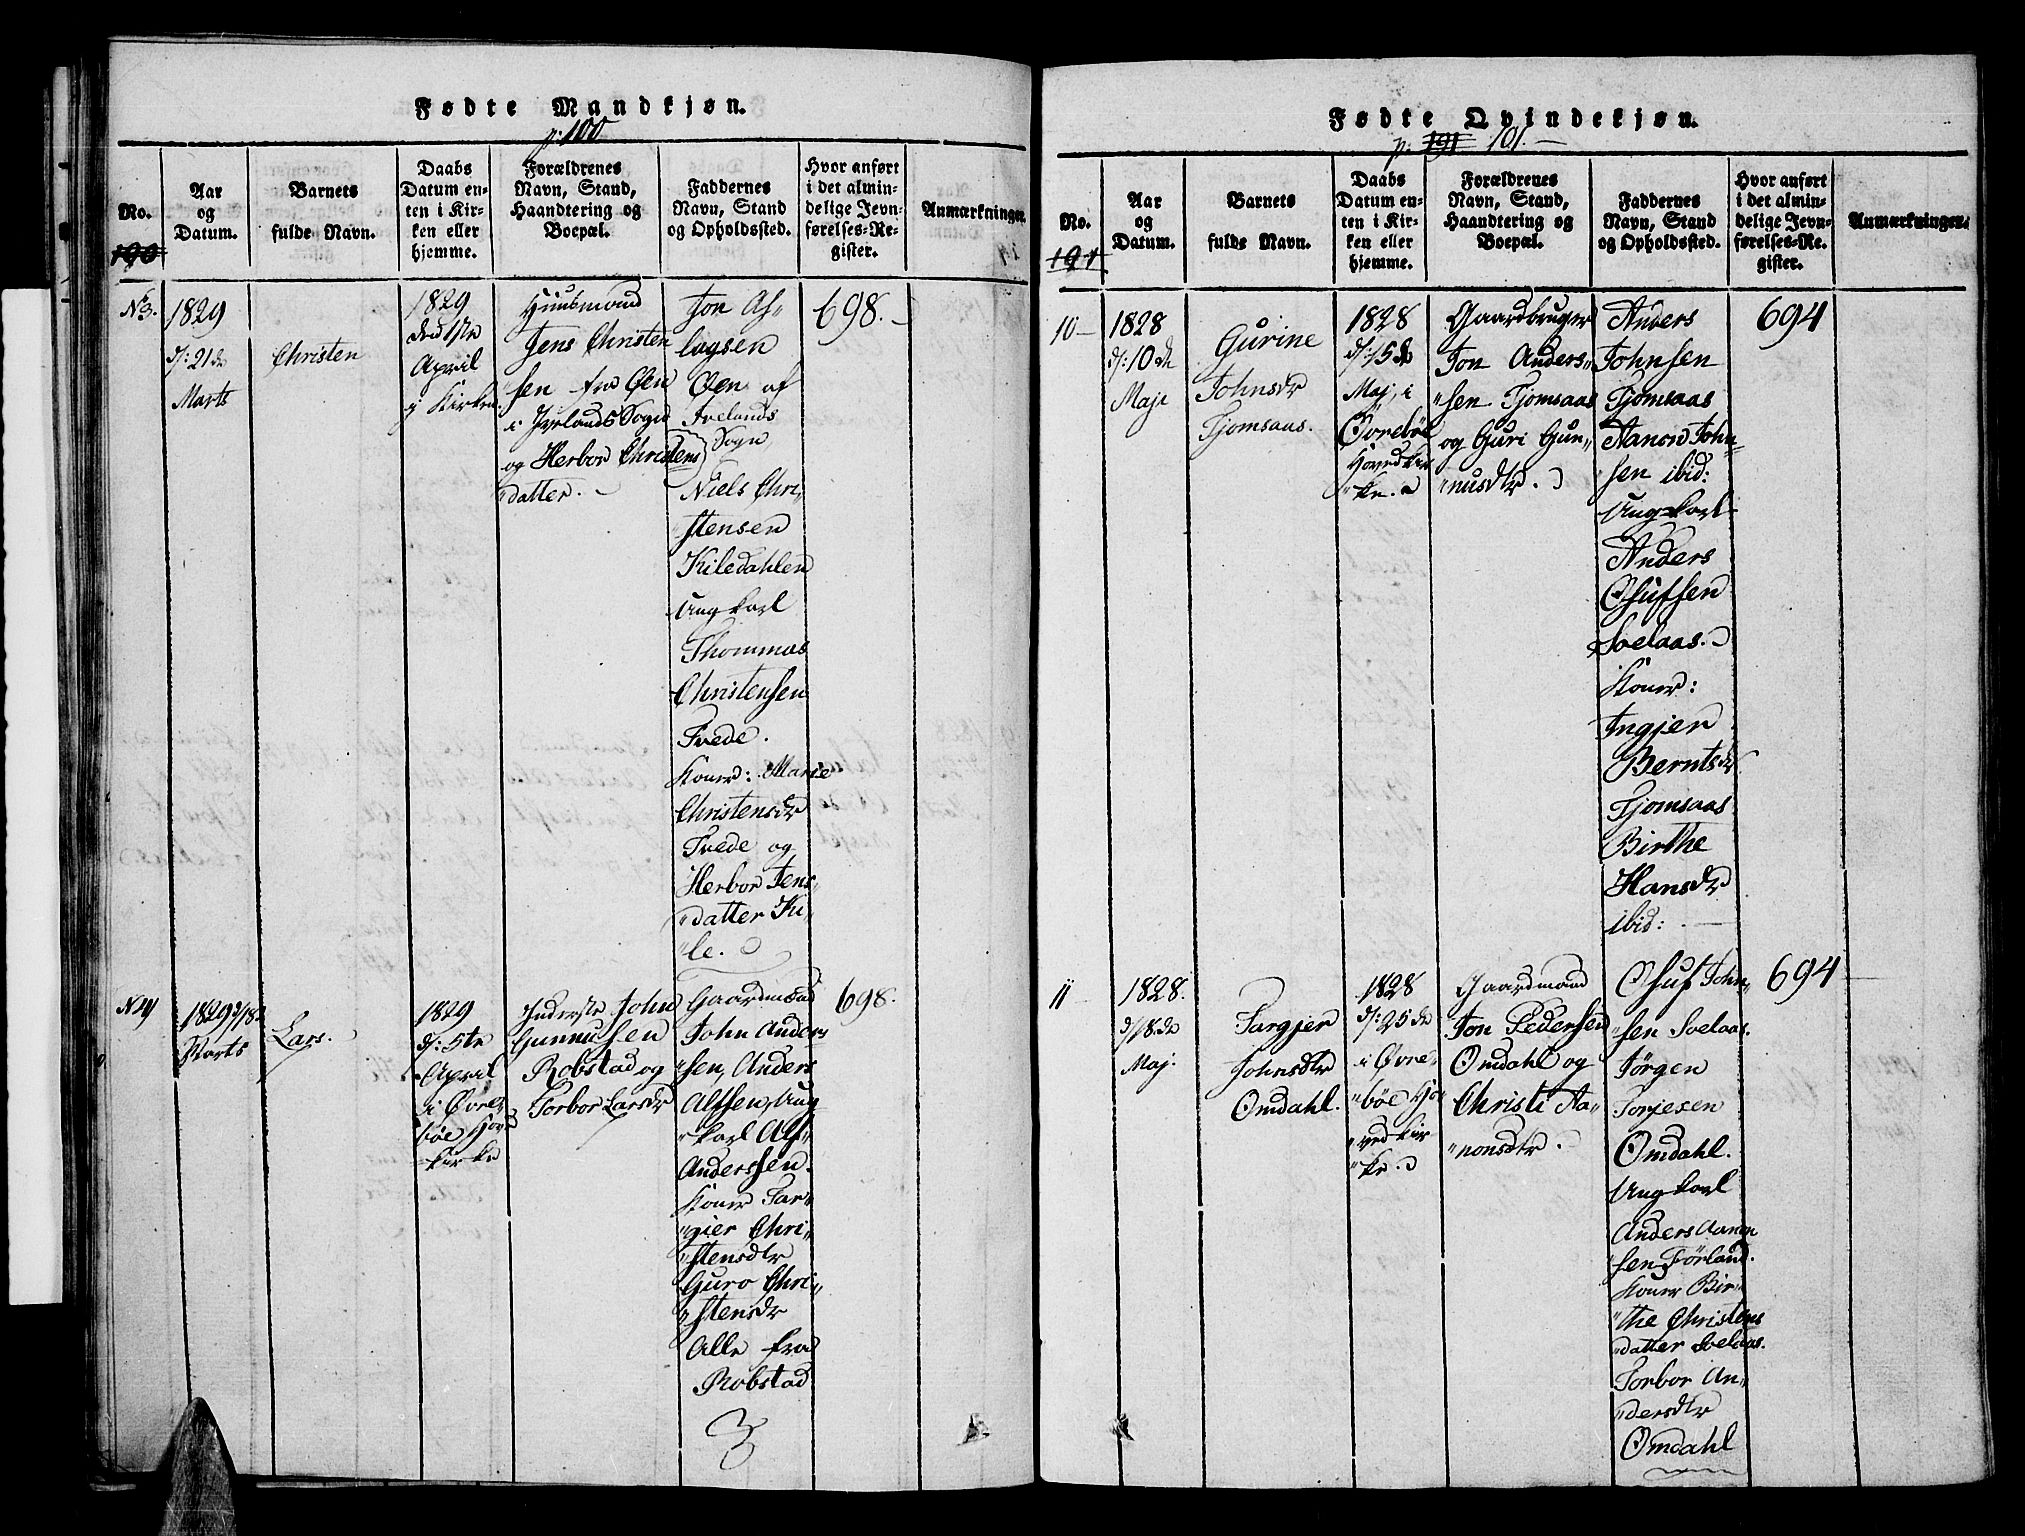 Fødte Mandkjøn.
p: 100
No.
190
Aar
og
Datum.
Barnets
fulde Navn.
Daabs
Datum en-
ten i Kir-
ken eller
hjemme.
Forældrenes
Navn, Stand,
Haandtering og
Boepæl.
Faddernes
Navn, Stand
og Opholdssted.
Hvor anført
i det almin-
delige Jevn-
førelses-Re-
gister.
Anmærkninger.
No 3.
1829
d: 21de
Marts
Christen
1829
den 1ste
April
i Kirken.
Huusmand
Jens Christen
sen fra Øen
i Ivelands Sogn
og Herbor Christens
datter.
Jon As-
lagsen
Øen af
Ivelands
Sogn,
Niels Chri-
stensen
Kiledahlen
Ungkarl
Thommas
Christensen
Tvede.
Koner: Marie
Christensdr
Tvede og
Herbor Jens
datter Ki-
le.
698.
N 4
1829
Marts
Lars.
1829
d: 5te
April
i Øvre-
bøe Hov
kirke
Inderste John
Gunnusen
Robstad og
Torbor Larsdr
Gaardmand
John Anders
sen, Anders
Alfsen, Ung
karl Alf
Anderssen.
Koner Tar-
gier Chri-
stensdtr
Guro Chri-
stensdr
Alle fra
Robstad
698.
Fødte Qvindekjøn.
p: 191 101.
No.
191
Aar
og
Datum.
Barnets
fulde Navn.
Daabs
Datum en-
ten i Kir-
ken eller
hjemme.
Forældrenes
Navn, Stand,
Haandtering og
Boepæl.
Faddernes
Navn, Stand
og Opholdssted.
Hvor anført
i det almin-
delige Jevn-
førelses-Re.
gister.
Anmærkninger.
10
1828
d: 10de
Maje
Gurine
Johnsdr
Tjomsaas.
1828
d: 15de
Maj, i
Øvrebøe
Hovedkir
ke.
Gaardbruger
Jon Anders-
sen Tjomsaas
og Guri Gun-
nusdtr.
Anders
Johnsen
Tjomsaas
Aanon John-
sen ibid:
Ungkarl
Anders
Osufsen
Svelaas.
Koner:
Ingjer
Berntsdr
Tjomsaas
Birthe
Hansdr
ibid:
694
11
1828.
d/18de
Maj.
Targjer
Johnsdtr
Omdahl.
1828
d: 25de
i Øvre-
bøe Ho-
vedkir-
ke.
Gaardmand
Jon Pedersen
Omdahl og
Christi Aa-
nonsdtr.
Osuf John-
sen Svelaas.
Jørgen
Torjesen
Omdahl.
Ungkarl
Anders Aanon
sen Førland.
Koner Bir-
the Christens
datter Svelaas.
Torbor An-
dersdtr
Omdahl
694